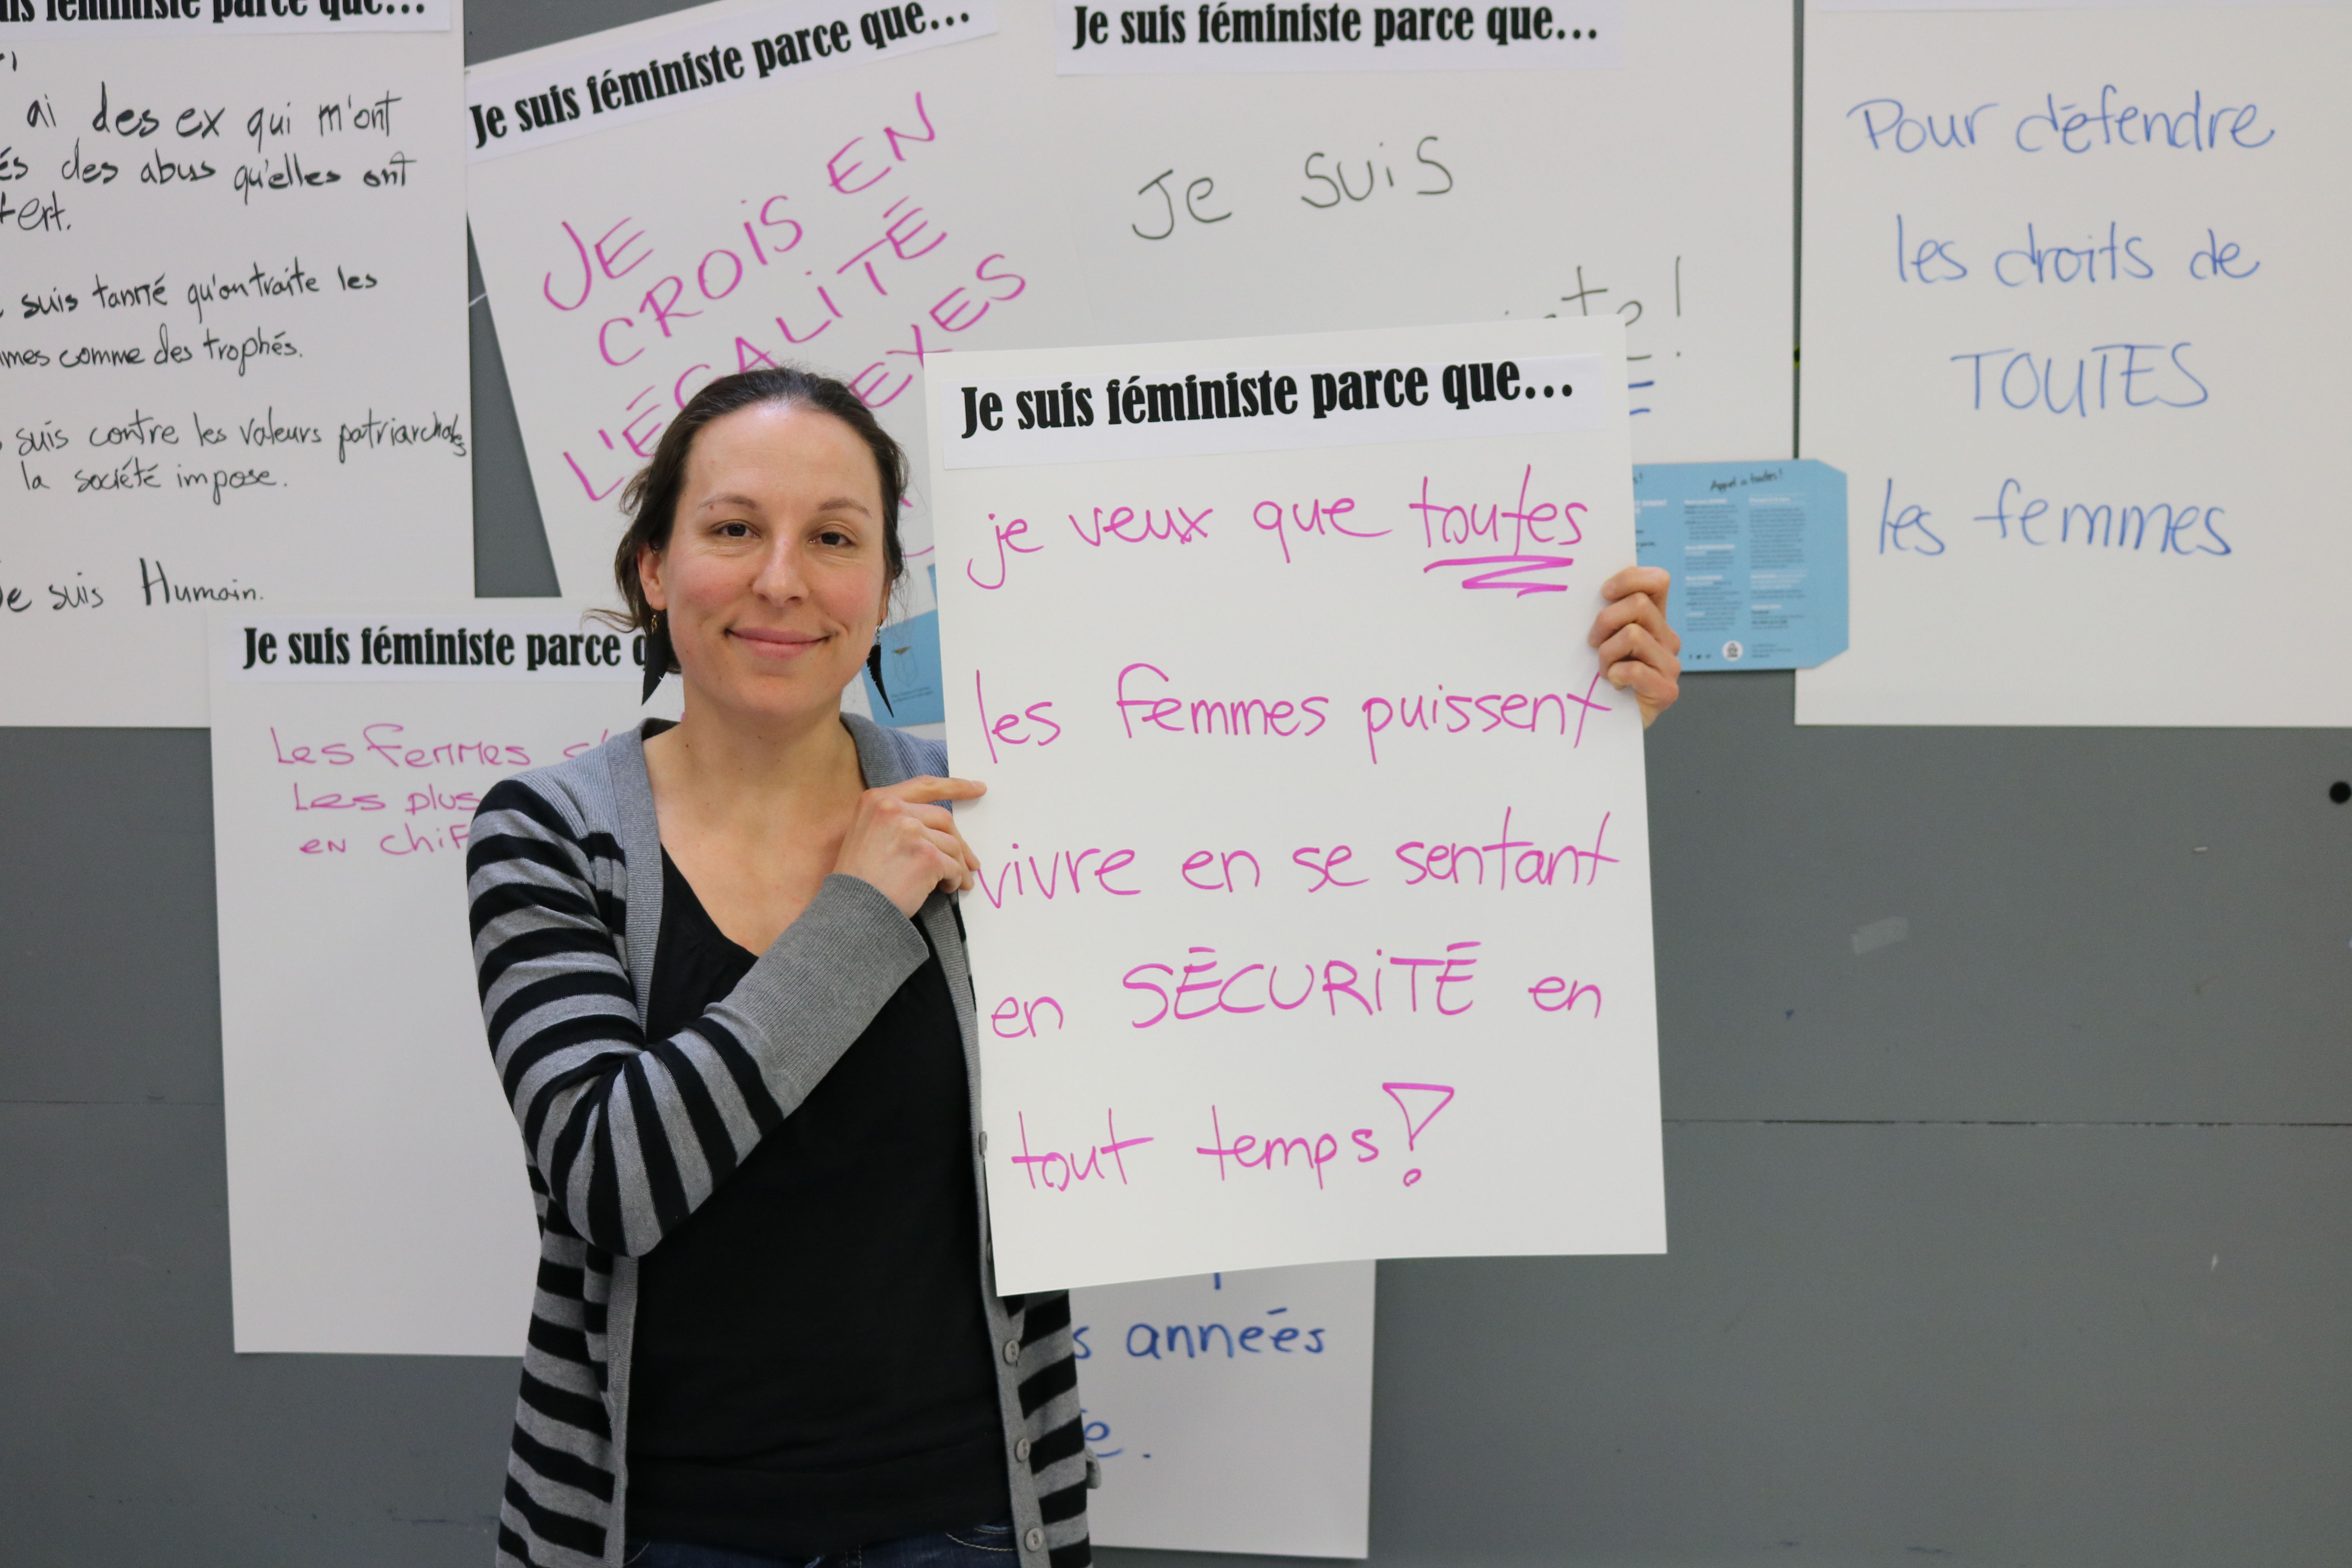 Je suis féministe parce que...
ai des ex qui m'ont
des abus qu'elles ont
suis tanné qu'on traite les
comme des trophés.
suis contre les valeurs patriarchales
la société impose.
suis Humain.
Je suis féministe parce que...
JE
CROIS EN
L'ÉGALITÉ
Je suis féministe parce que...
Je suis
Pour défendre
les droits de
TOUTES
les femmes
Appel à toutes!
Je suis féministe parce
Les femmes
Les plus
en
Je suis féministe parce que...
je veux que toutes
les femmes puissent
vivre en se sentant
en SÉCURiTÉ en
tout temps!
années